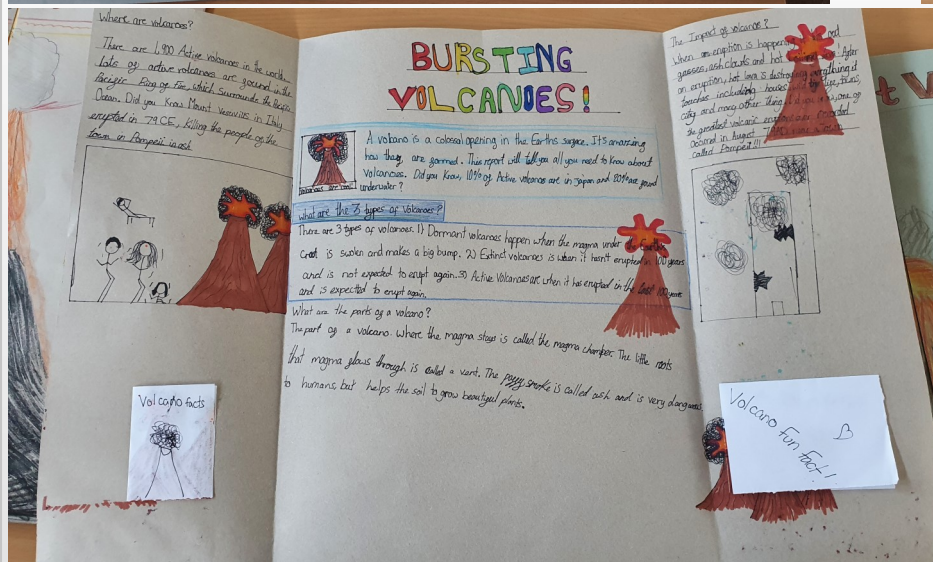 Where are volcanoes?
There are 1,900 Active volcanoes in the world.
Lots of active volcanoes are gound in the
Pacigic Ring og Fire, which surrounds the Pacigic
Ocean. Did you Know Mount Vesuvius in Italy
erupted in 79 CE, killing the people og the
town in Pompeii in ash
Volcano facts
BURSTING
VOLCANOES!
A volcano is a colossal opening in the Earths surgace. It's amazing
how they are gormed. This report will tell you all you need to know about
Volcanoes. Did you Know, 10% og Active volcanoes are in japan and 80% are gound
underwater?
Volcanoes are cool
What are the 3 types of Volcanoes?
There are 3 types of volcanoes. 1) Dormant volcanoes happen when the magma under the Earths
Crust is swolen and makes a big bump. 2) Extinct volcanoes is when it hasn't erupted in 100 years
and is not expected to erupt again. 3) Active Volcanoes are when it has erupted in the last 100 years
and is expected to erupt again.
What are the parts og a volcano?
The part og a volcano. Where the magma stays is called the magma chamber. The little roots
that magma glows through is called a vent. The smoke is called ash and is very dangerous
to humans but helps the soil to grow beautiful plants.
The Impact of volcanoe?
When an eruption is happening red
gasses, ash clouds and hot After
an eruption, hot lava is destroying everything it
touches including houses, towns,
city and many other thing. Did you know, one og
the greatest volcanic ever recorded
occured in August 79
called Pompeii!!!
Volcano Fun Fact!